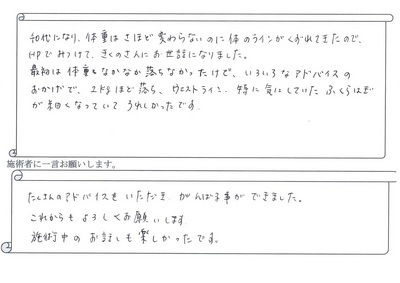 40代になり、体重はさほど変わらないのに体のラインがくずれてきたので、
HPでみつけて、きくのさんにお世話になりました。
最初は体重もなかなか落ちなかったけど、いろいろなアドバイスの
おかげで、2kgほど落ち、ウエストライン、特に気にしていたふくらはぎ
が細くなっていてうれしかったです。
施術者に一言お願いします。
たくさんのアドバイスをいただき、がんばる事ができました。
これからもよろしくお願いします。
施術中のお話しも楽しかったです。